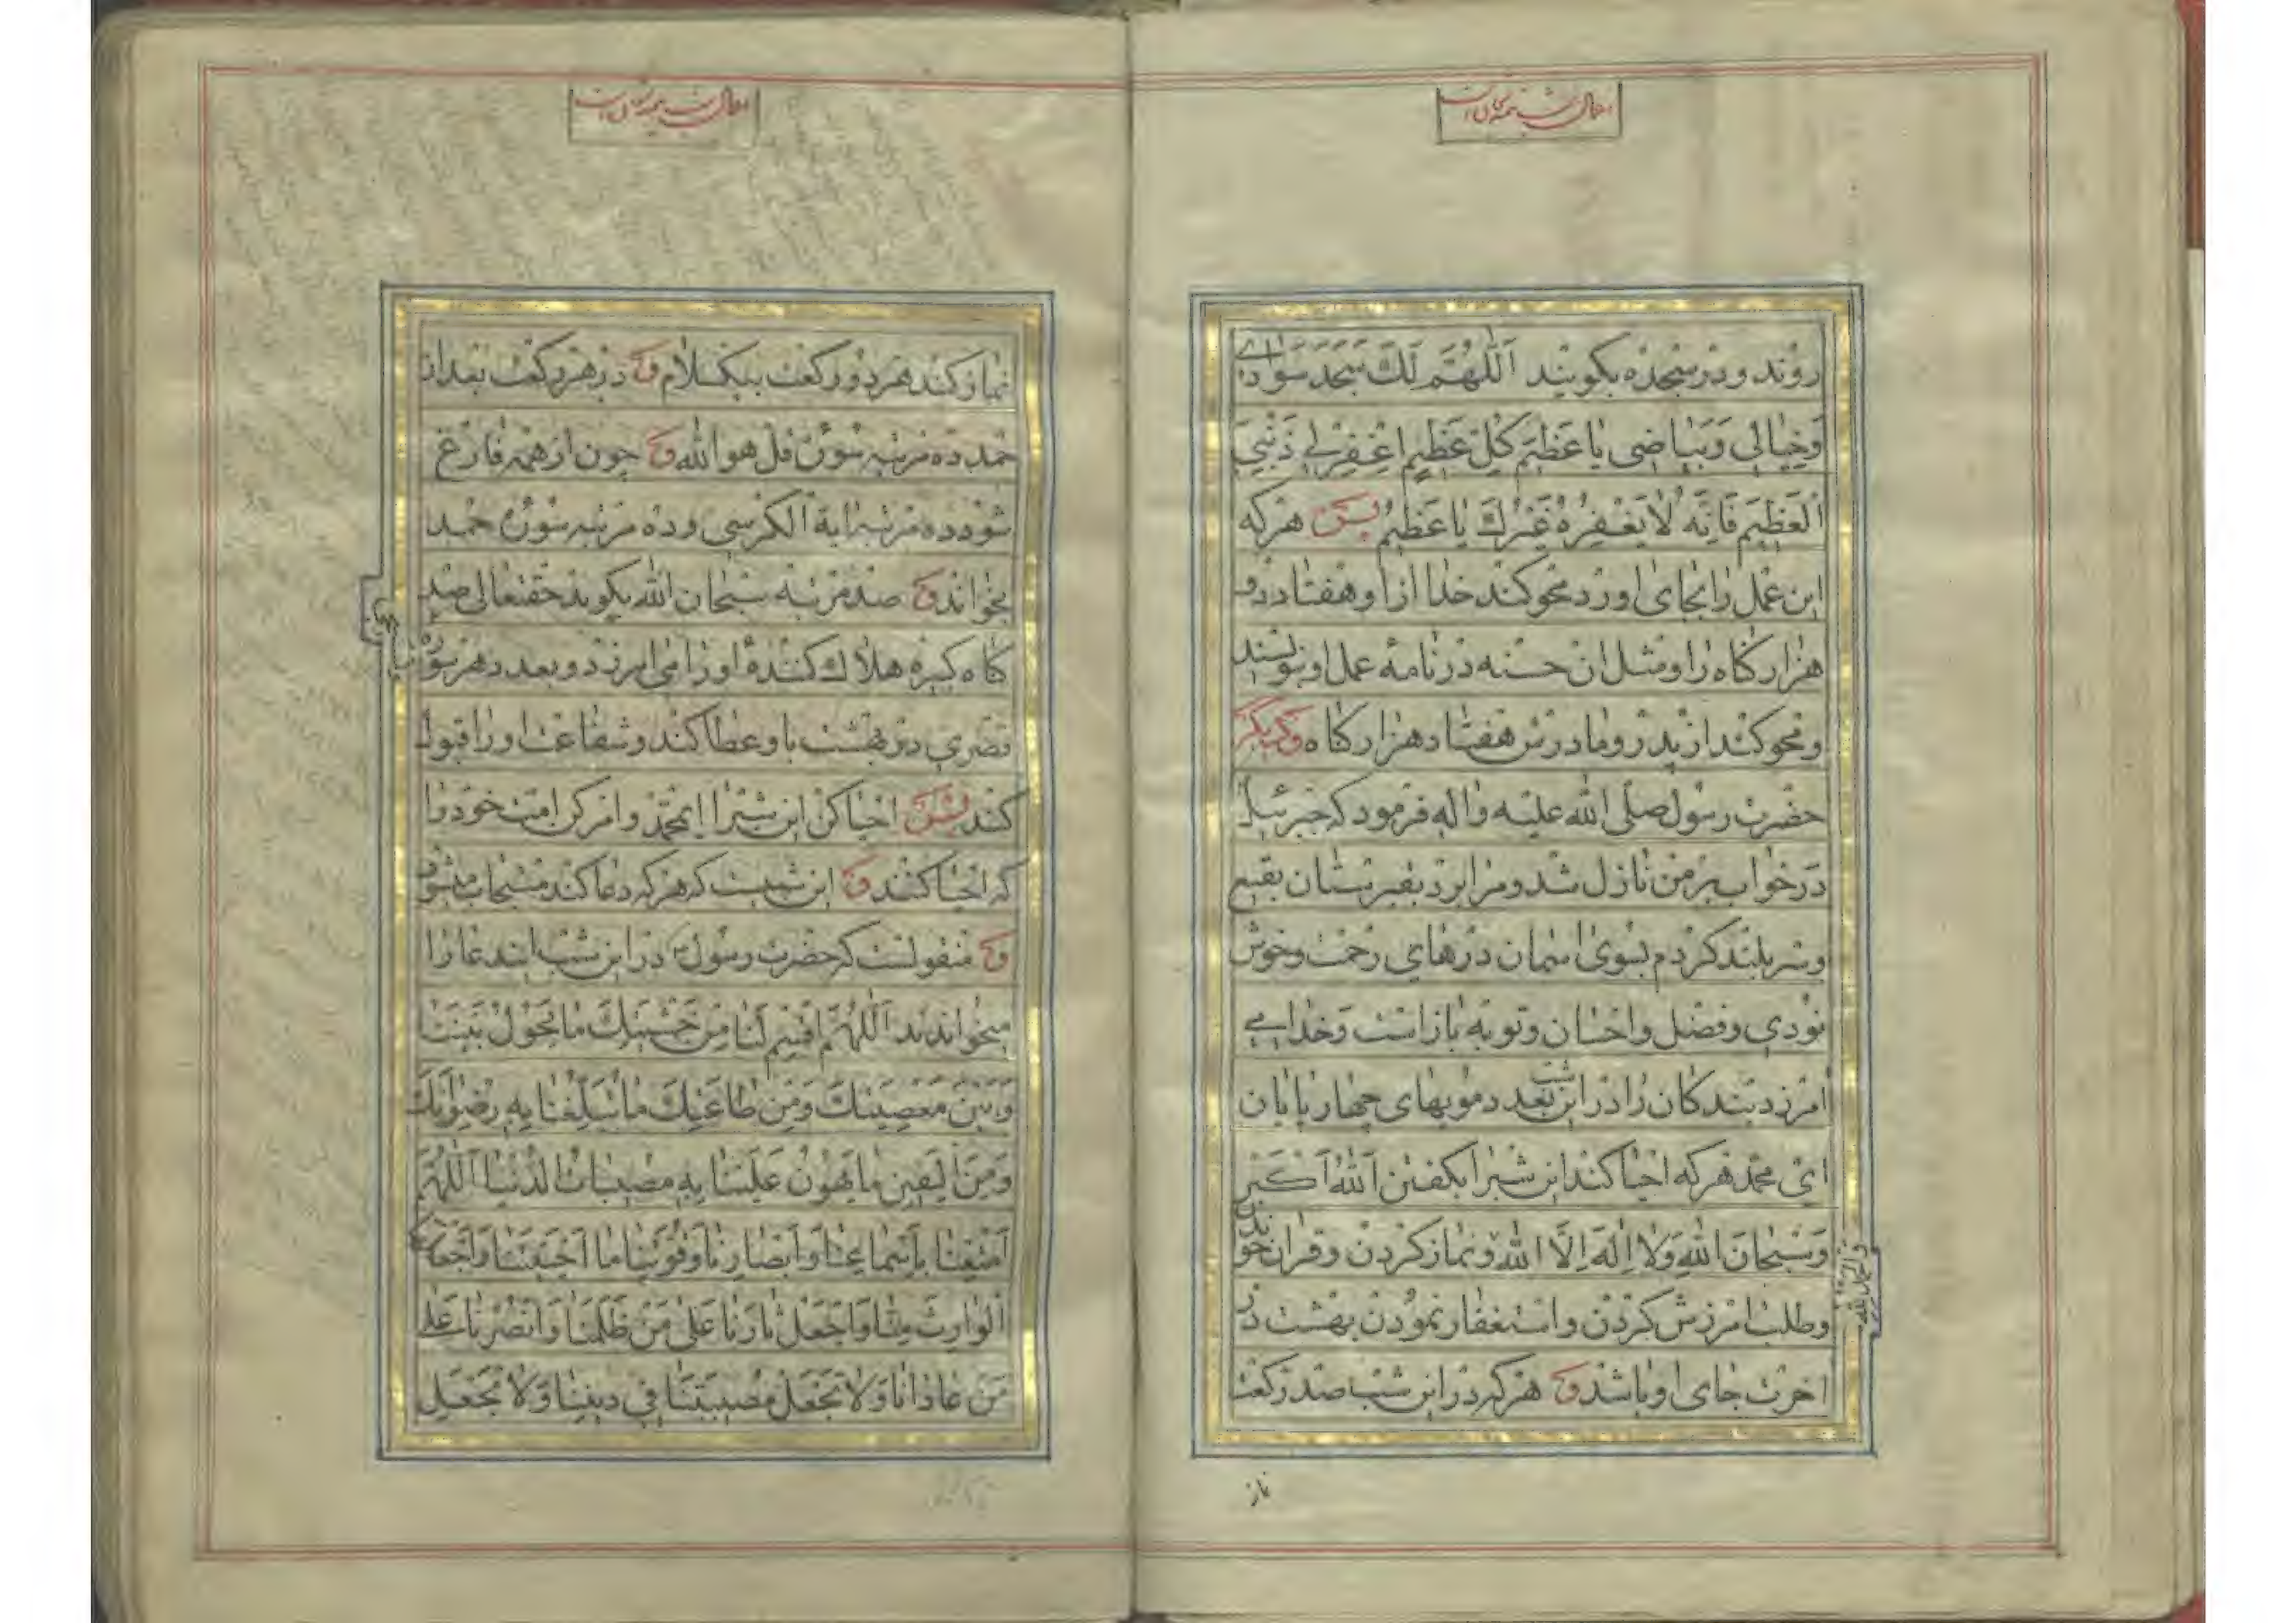 اعمال شب نیمه شعبان
روند و در سجده بکویند اَللّهُمَّ لَکَ سَجَدَ سَوادی
وَخِیالی وَبَیاضی یا عَظیمَ کُلِّ عَظیمٍ اغْفِرْ لی ذَنْبِیَ
الْعَظیمَ فَاِنَّهُ لا یَغْفِرُهُ غَیْرُكَ یا عَظیمُ پس هر که
این عمل را بجای اورد محو کند خدا از او هفتاد و دو
هزار کناه را و مثل ان حسنه در نامه عمل او بنویسند
و محو کند از پدر و مادرش هفتاد هزار کناه و دیکر
حضرت رسول صلی الله علیه واله فرمود که جبرئیل
در خواب بر من نازل شد و مرا برد بقبرستان بقیع
و سر بلند کردم بسوی اسمان درهای رحمت و خوش
نودی و فضل و احسان و توبه باز است و خدا می
امرزد بندکان را در این شب بعدد مویهای چهار پایان
ای محمد هر که احیا کند این شبرا بکفتن اَللهُ اَکْبَر
وَسُبْحانَ اللهِ وَلا اِلهَ اِلَّا اللهُ و نماز کردن و قران خواندن
والحمد لله
و طلب امرزش کردن و استغفار نمودن بهشت در
اخرت جای او باشد و هر که در این شب صد رکعت
ناز
اعمال شب نیمه شعبان
نماز کند هر دو رکعت بیکسلام و در هر رکعت بعد از
حمد ده مرتبه سوره قل هو الله و چون از همه فارغ
شود ده مرتبه ایة الکرسی و ده مرتبه سوره حمد
بخواند و صد مرتبه سبحان الله بکوید حقتعالی صد
کناه کبیره هلاك کننده او را می امرزد و بعدد هر سوره
قصری در بهشت باو عطا کند و شفاعت او را قبول
کند پس احیا کن این شبرا ایمحمد و امر کن امت خود را
که احیا کنند و این شبیست که هر که دعا کند مستجاب میشود
و منقولست که حضرت رسول در این شب ایندعا را
میخواندند اَللّهُمَّ اقْسِمْ لَنا مِنْ خَشْیَتِكَ ما یَحُولُ بَیْنَنا
وَبَیْنَ مَعْصِیَتِكَ وَمِنْ طاعَتِكَ ما تُبَلِّغُنا بِهِ رِضْوانَكَ
وَمِنَ الْیَقینِ ما یَهُونُ عَلَیْنا بِهِ مُصیباتُ الدُّنْیا اَللّهُمَّ
اَمْتِعْنا بِاَسْماعِنا وَاَبْصارِنا وَقُوَّتِنا ما اَحْیَیْتَنا وَاجْعَلْهُ
الْوارِثَ مِنّا وَاجْعَلْ ثارَنا عَلی مَنْ ظَلَمَنا وَانْصُرْنا عَلی
مَنْ عادانا وَلا تَجْعَلْ مُصیبَتَنا فی دینِنا وَلا تَجْعَلِ